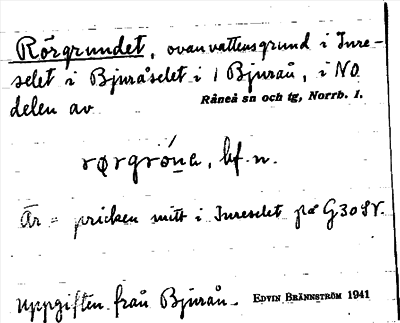 Rörgrundet, ovanvattensgrund i Inre-
selet i Bjuråselet i / Bjurån, i NO
delen av Råneå sn och tg, Norrb. l.
rørgróna, bf. n.
Är = pricken mitt i Inreselet på G30SV.
Uppgiften från Bjurån. EDVIN BRÄNNSTRÖM 1941